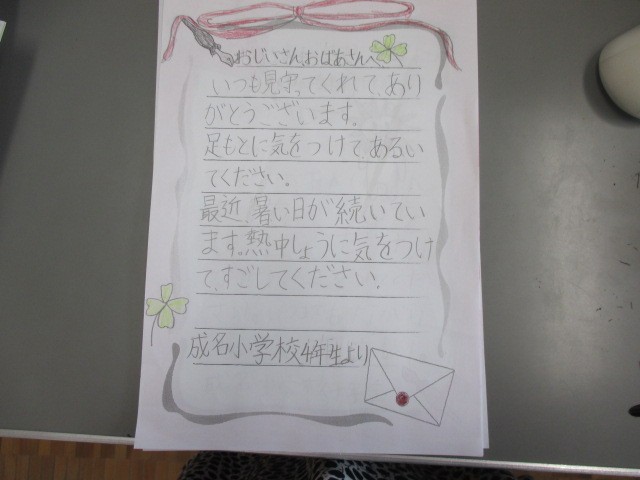 おじいさん、おばあさんへ
いつも見守ってくれて、あり
がとうございます。
足もとに気をつけて、あるい
てください。
最近、暑い日が続いてい
ます。熱中しょうに気をつけ
て、すごしてください。
成名小学校4年生より